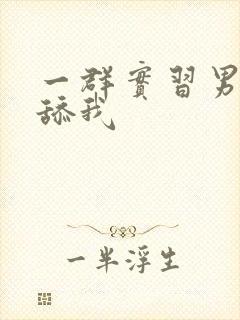 一群實習男
舔我
一半浮生